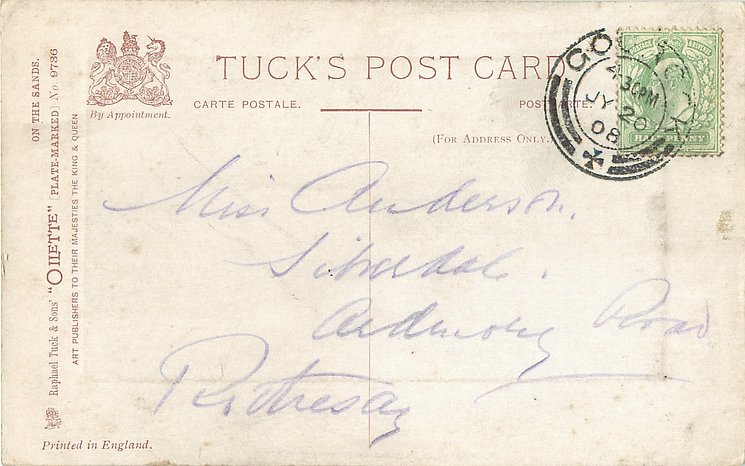 ON THE SANDS.
Raphael Tuck & Sons' "OILETTE" [PLATE-MARKED] No. 9736
ART PUBLISHERS TO THEIR MAJESTIES THE KING & QUEEN
By Appointment.
TUCK'S POST CARD
CARTE POSTALE.
POSTKARTE.
(FOR ADDRESS ONLY.)
GOUROCK
4.30PM
JY 20
08
HALFPENNY
Miss Anderson.
Silverdale.
Ardmory Road
Rothesay
Printed in England.